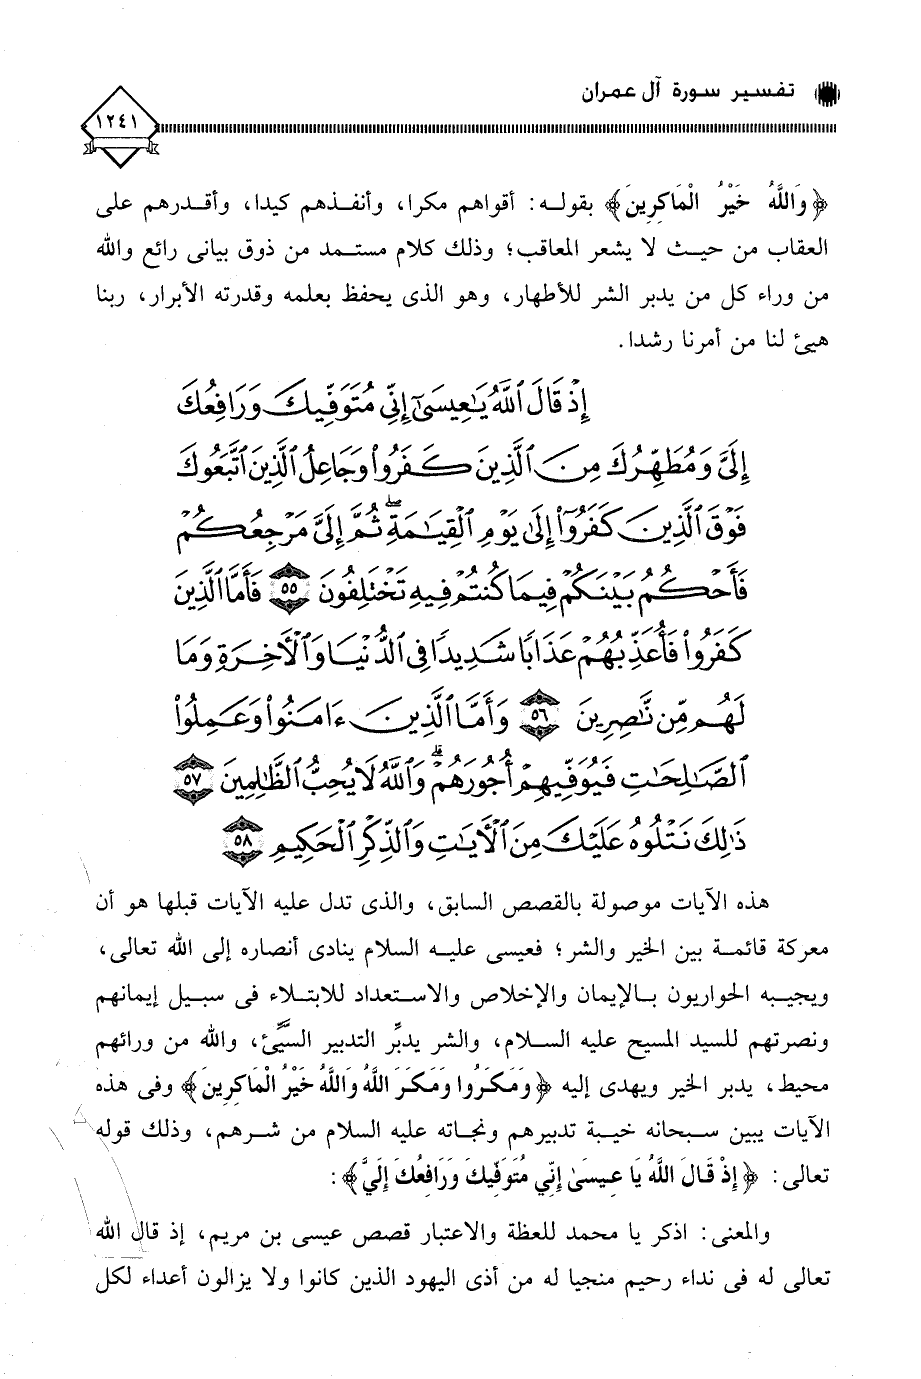 تفسير سورة آل عمران
١٢٤١
﴿وَاللَّهُ خَيْرُ الْمَاكِرِينَ﴾ بقوله: أقواهم مكرا، وأنفذهم كيدا، وأقدرهم على
العقاب من حيث لا يشعر المعاقب؛ وذلك كلام مستمد من ذوق بيانى رائع والله
من وراء كل من يدبر الشر للأطهار، وهو الذى يحفظ بعلمه وقدرته الأبرار، ربنا
هيئ لنا من أمرنا رشدا.
إِذْ قَالَ ٱللَّهُ يَٰعِيسَىٰٓ إِنِّى مُتَوَفِّيكَ وَرَافِعُكَ
إِلَىَّ وَمُطَهِّرُكَ مِنَ ٱلَّذِينَ كَفَرُوا۟ وَجَاعِلُ ٱلَّذِينَ ٱتَّبَعُوكَ
فَوْقَ ٱلَّذِينَ كَفَرُوٓا۟ إِلَىٰ يَوْمِ ٱلْقِيَٰمَةِ ۖ ثُمَّ إِلَىَّ مَرْجِعُكُمْ
فَأَحْكُمُ بَيْنَكُمْ فِيمَا كُنتُمْ فِيهِ تَخْتَلِفُونَ ٥٥ فَأَمَّا ٱلَّذِينَ
كَفَرُوا۟ فَأُعَذِّبُهُمْ عَذَابًا شَدِيدًا فِى ٱلدُّنْيَا وَٱلْأَخِرَةِ وَمَا
لَهُم مِّن نَّٰصِرِينَ ٥٦ وَأَمَّا ٱلَّذِينَ ءَامَنُوا۟ وَعَمِلُوا۟
ٱلصَّٰلِحَٰتِ فَيُوَفِّيهِمْ أُجُورَهُمْ ۗ وَٱللَّهُ لَا يُحِبُّ ٱلظَّٰلِمِينَ ٥٧
ذَٰلِكَ نَتْلُوهُ عَلَيْكَ مِنَ ٱلْأَيَٰتِ وَٱلذِّكْرِ ٱلْحَكِيمِ ٥٨
هذه الآيات موصولة بالقصص السابق، والذى تدل عليه الآيات قبلها هو أن
معركة قائمة بين الخير والشر؛ فعيسى عليه السلام ينادى أنصاره إلى الله تعالى،
ويجيبه الحواريون بالإيمان والإخلاص والاستعداد للابتلاء فى سبيل إيمانهم
ونصرتهم للسيد المسيح عليه السلام، والشر يدبِّر التدبير السيِّئ، والله من ورائهم
محيط، يدبر الخير ويهدى إليه ﴿وَمَكَرُوا وَمَكَرَ اللَّهُ وَاللَّهُ خَيْرُ الْمَاكِرِينَ﴾ وفى هذه
الآيات يبين سبحانه خيبة تدبيرهم ونجاته عليه السلام من شرهم، وذلك قوله
تعالى: ﴿إِذْ قَالَ اللَّهُ يَا عِيسَىٰ إِنِّي مُتَوَفِّيكَ وَرَافِعُكَ إِلَيَّ﴾:
والمعنى: اذكر يا محمد للعظة والاعتبار قصص عيسى بن مريم، إذ قال الله
تعالى له فى نداء رحيم منجيا له من أذى اليهود الذين كانوا ولا يزالون أعداء لكل